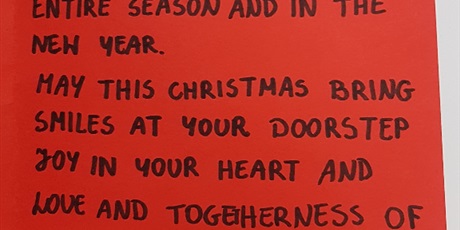 ENTIRE SEASON AND IN THE
NEW YEAR.
MAY THIS CHRISTMAS BRING
SMILES AT YOUR DOORSTEP
JOY IN YOUR HEART AND
LOVE AND TOGETHERNESS OF